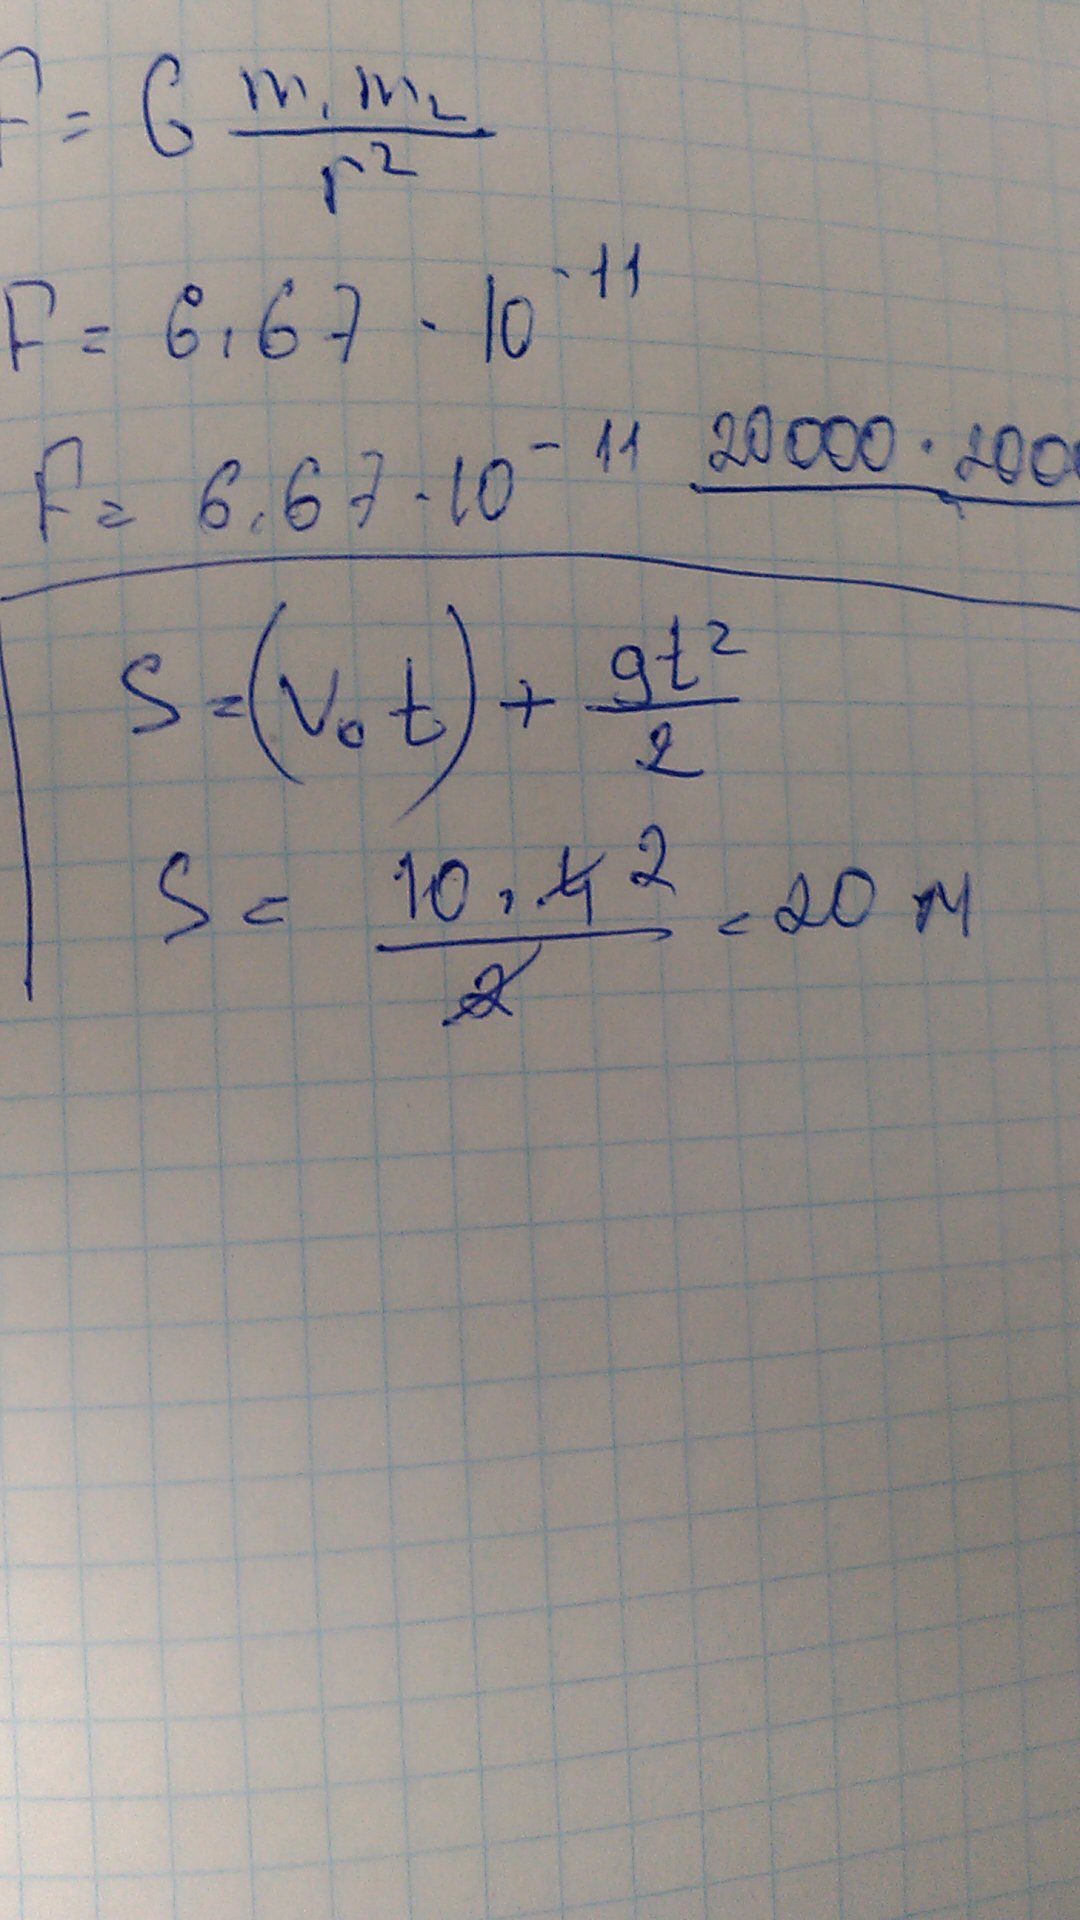 F = G m₁ m₂ / r²
F = 6,67 · 10⁻¹¹
F = 6,67 · 10⁻¹¹ 20000 ·
S = (V₀ t) + gt² / 2
S = 10 · 4 2 / 2 = 20 м